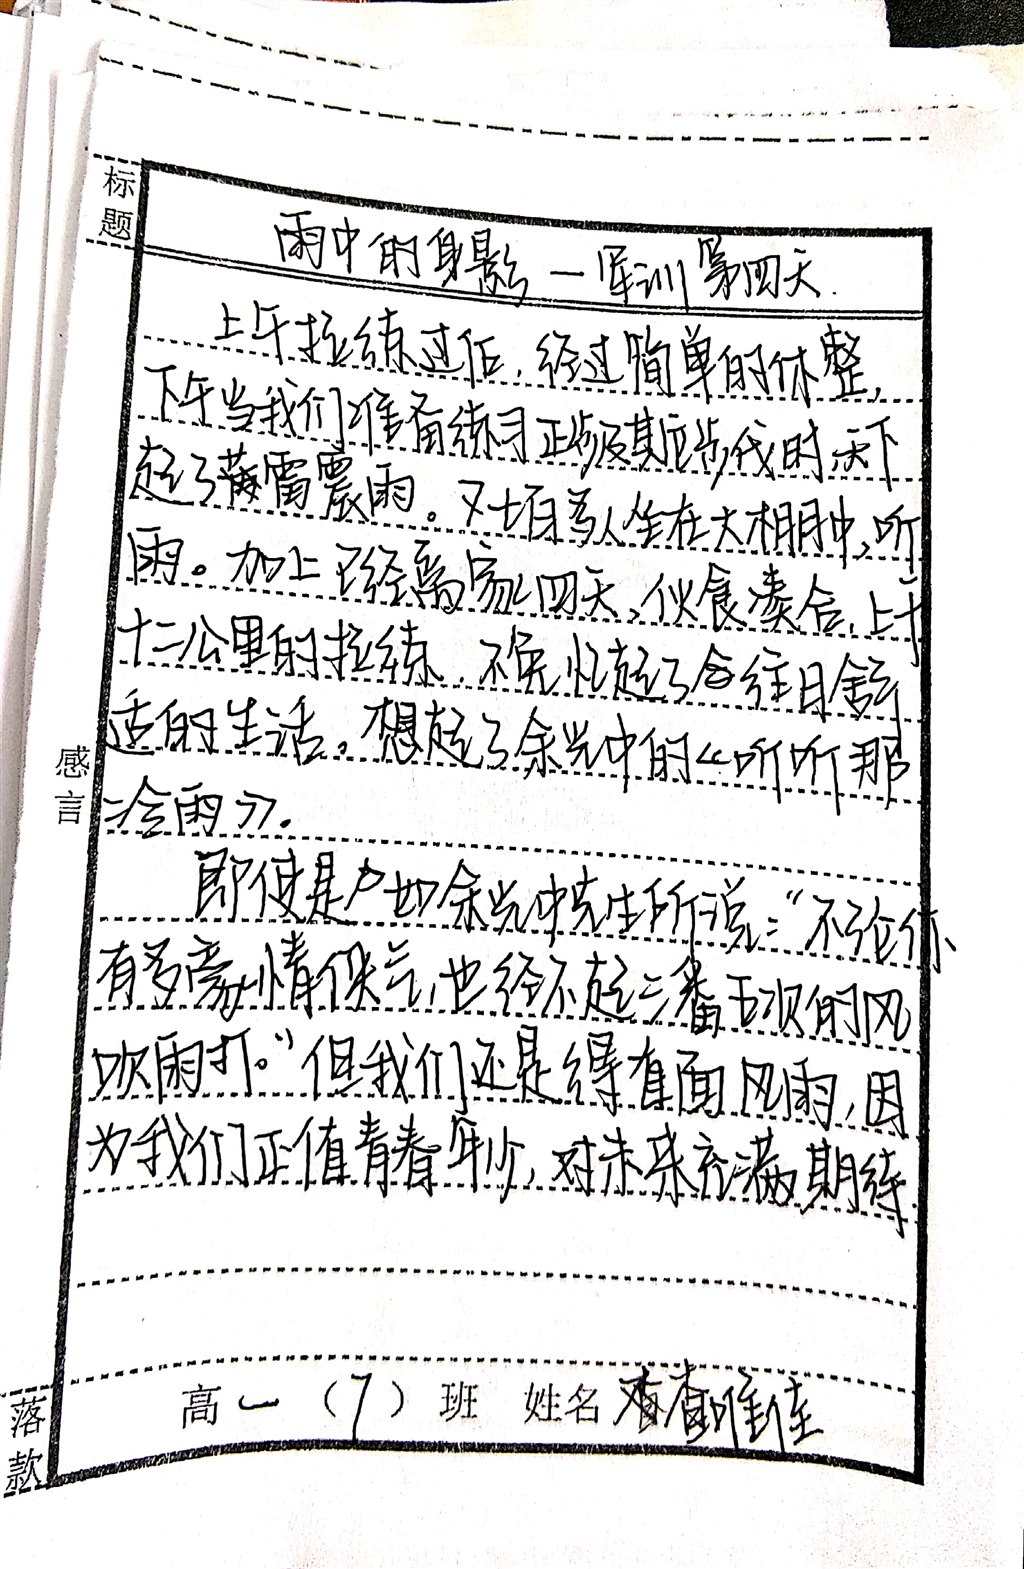 标题
雨中的身影 — 军训第四天.
上午拉练过后,经过简单的休整,
下午当我们准备练习正步及其应步伐时,天下
起了雷震雨。又坐在大棚中,听
雨。加上已经离家四天,伙食凑合,上午
十二公里的拉练,不免忆起了往日舒
适的生活。想起了余光中的《听听那
冷雨》.
感言
即使是如余光中先生所说:“不论你
有多豪情侠气,也经不起三番五次的风
吹雨打。”但我们还是得直面风雨,因
为我们正值青春年少,对未来充满期
落款
高一(7)班 姓名 查唯佳